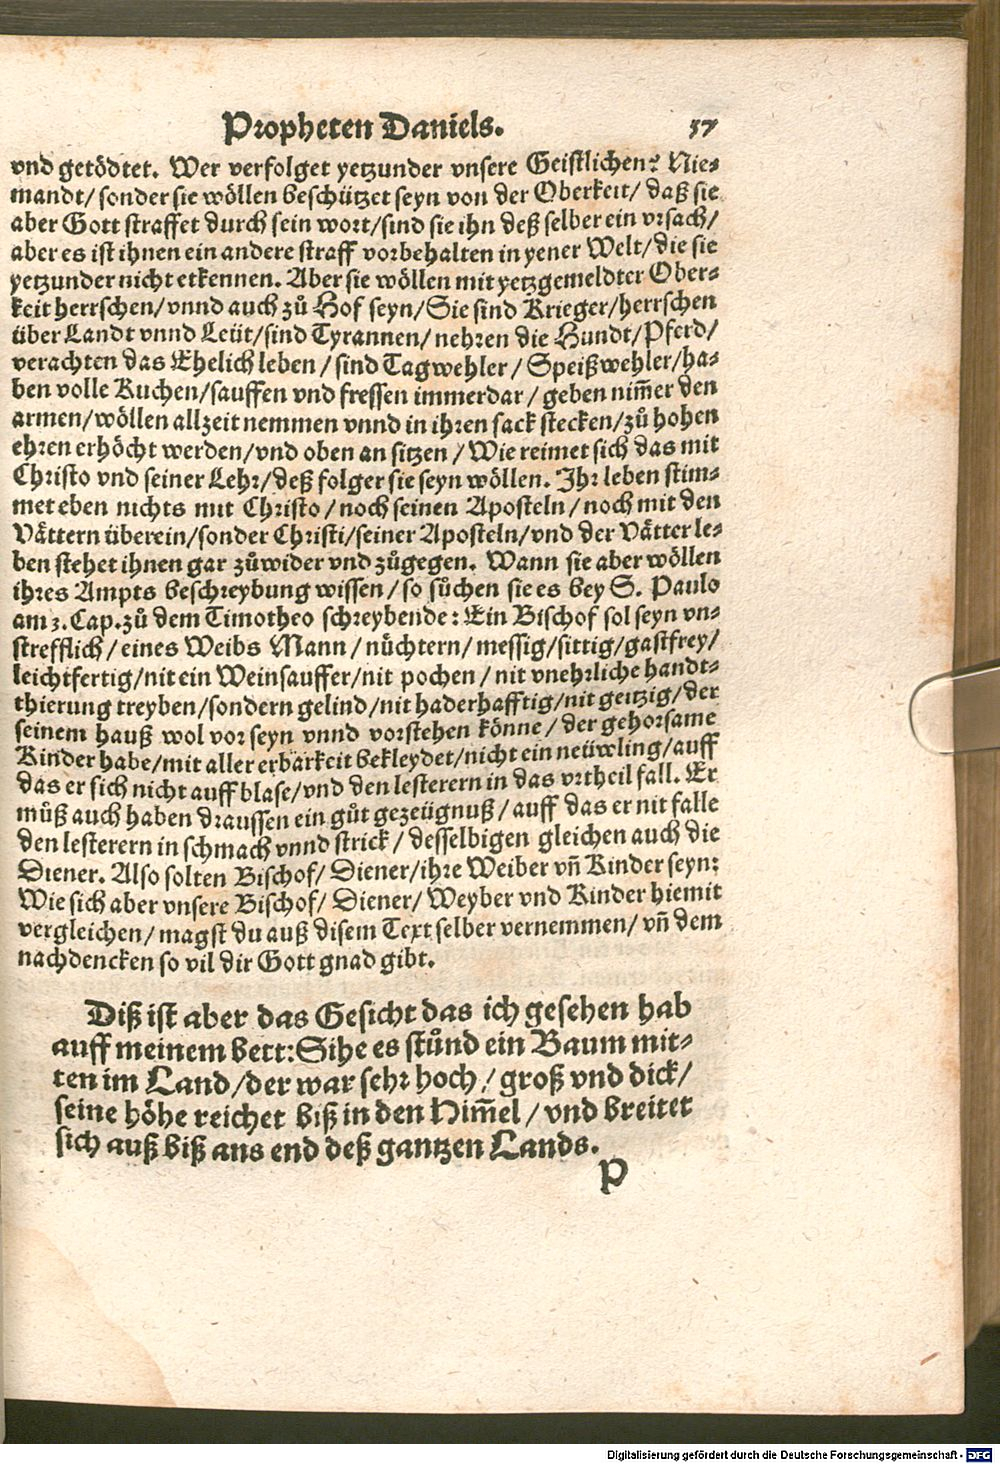 Propheten Daniels. 57
vnd getödtet. Wer verfolget yetzunder vnsere Geistlichen? Nie-
mandt/ sonder sie wöllen beschützet seyn von der Oberkeit/ daß sie
aber Gott straffet durch sein wort/sind sie ihn deß selber ein vrsach/
aber es ist ihnen ein andere straff vorbehalten in yener Welt/die sie
yetzunder nicht erkennen. Aber sie wöllen mit yetzgemeldter Ober-
keit herrschen/vnnd auch zů Hof seyn/Sie sind Krieger/herrschen
über Landt vnnd Leüt/sind Tyrannen/ nehren die Hundt/Pferd/
verachten das Ehelich leben/ sind Tagwehler/ Speißwehler/ha-
ben volle Kuchen/sauffen vnd fressen immerdar/ geben nim̄er den
armen/wöllen allzeit nemmen vnnd in ihren sack stecken/zů hohen
ehren erhöcht werden/vnd oben an sitzen/ Wie reimet sich das mit
Christo vnd seiner Lehr/deß folger sie seyn wöllen. Ihr leben stim-
met eben nichts mit Christo/ noch seinen Aposteln/ noch mit den
Vättern überein/sonder Christi/seiner Aposteln/vnd der Vätter le-
ben stehet ihnen gar zůwider vnd zůgegen. Wann sie aber wöllen
ihres Ampts beschreybung wissen/ so sůchen sie es bey S. Paulo
am 3. Cap. zů dem Timotheo schreybende: Ein Bischof sol seyn vn-
strefflich/ eines Weibs Mann/ nüchtern/ messig/sittig/gastfrey/
leichtfertig/nit ein Weinsauffer/nit pochen/ nit vnehrliche handt-
thierung treyben/sondern gelind/nit haderhafftig/nit geitzig/der
seinem hauß wol vor seyn vnnd vorstehen könne/ der gehorsame
Kinder habe/mit aller erbarkeit bekleydet/nicht ein neüwling/auff
das er sich nicht auff blase/vnd den lesterern in das vrtheil fall. Er
můß auch haben draussen ein gůt gezeügnuß/ auff das er nit falle
den lesterern in schmach vnnd strick/ desselbigen gleichen auch die
Diener. Also solten Bischof/ Diener/ihre Weiber vn̄ Kinder seyn:
Wie sich aber vnsere Bischof/ Diener/ Weyber vnd Kinder hiemit
vergleichen/ magst du auß disem Text selber vernemmen/ vn̄ dem
nachdencken so vil dir Gott gnad gibt.
Diß ist aber das Gesicht das ich gesehen hab
auff meinem bett: Sihe es stůnd ein Baum mit-
ten im Land/der war sehr hoch/ groß vnd dick/
seine höhe reichet biß in den Him̄el/ vnd breitet
sich auß biß ans end deß gantzen Lands.
P
Digitalisierung gefördert durch die Deutsche Forschungsgemeinschaft - DFG